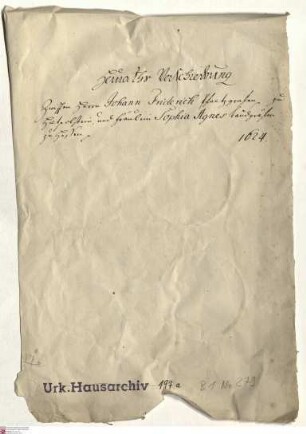 Heuraths Verschreibung
Zwischen Herrn Johann Friderich Pfaltzgrafen zu
und Fräulein Sophia Agnes Landgräfin
zu Hessen.
1624
Urk. Hausarchiv 197a